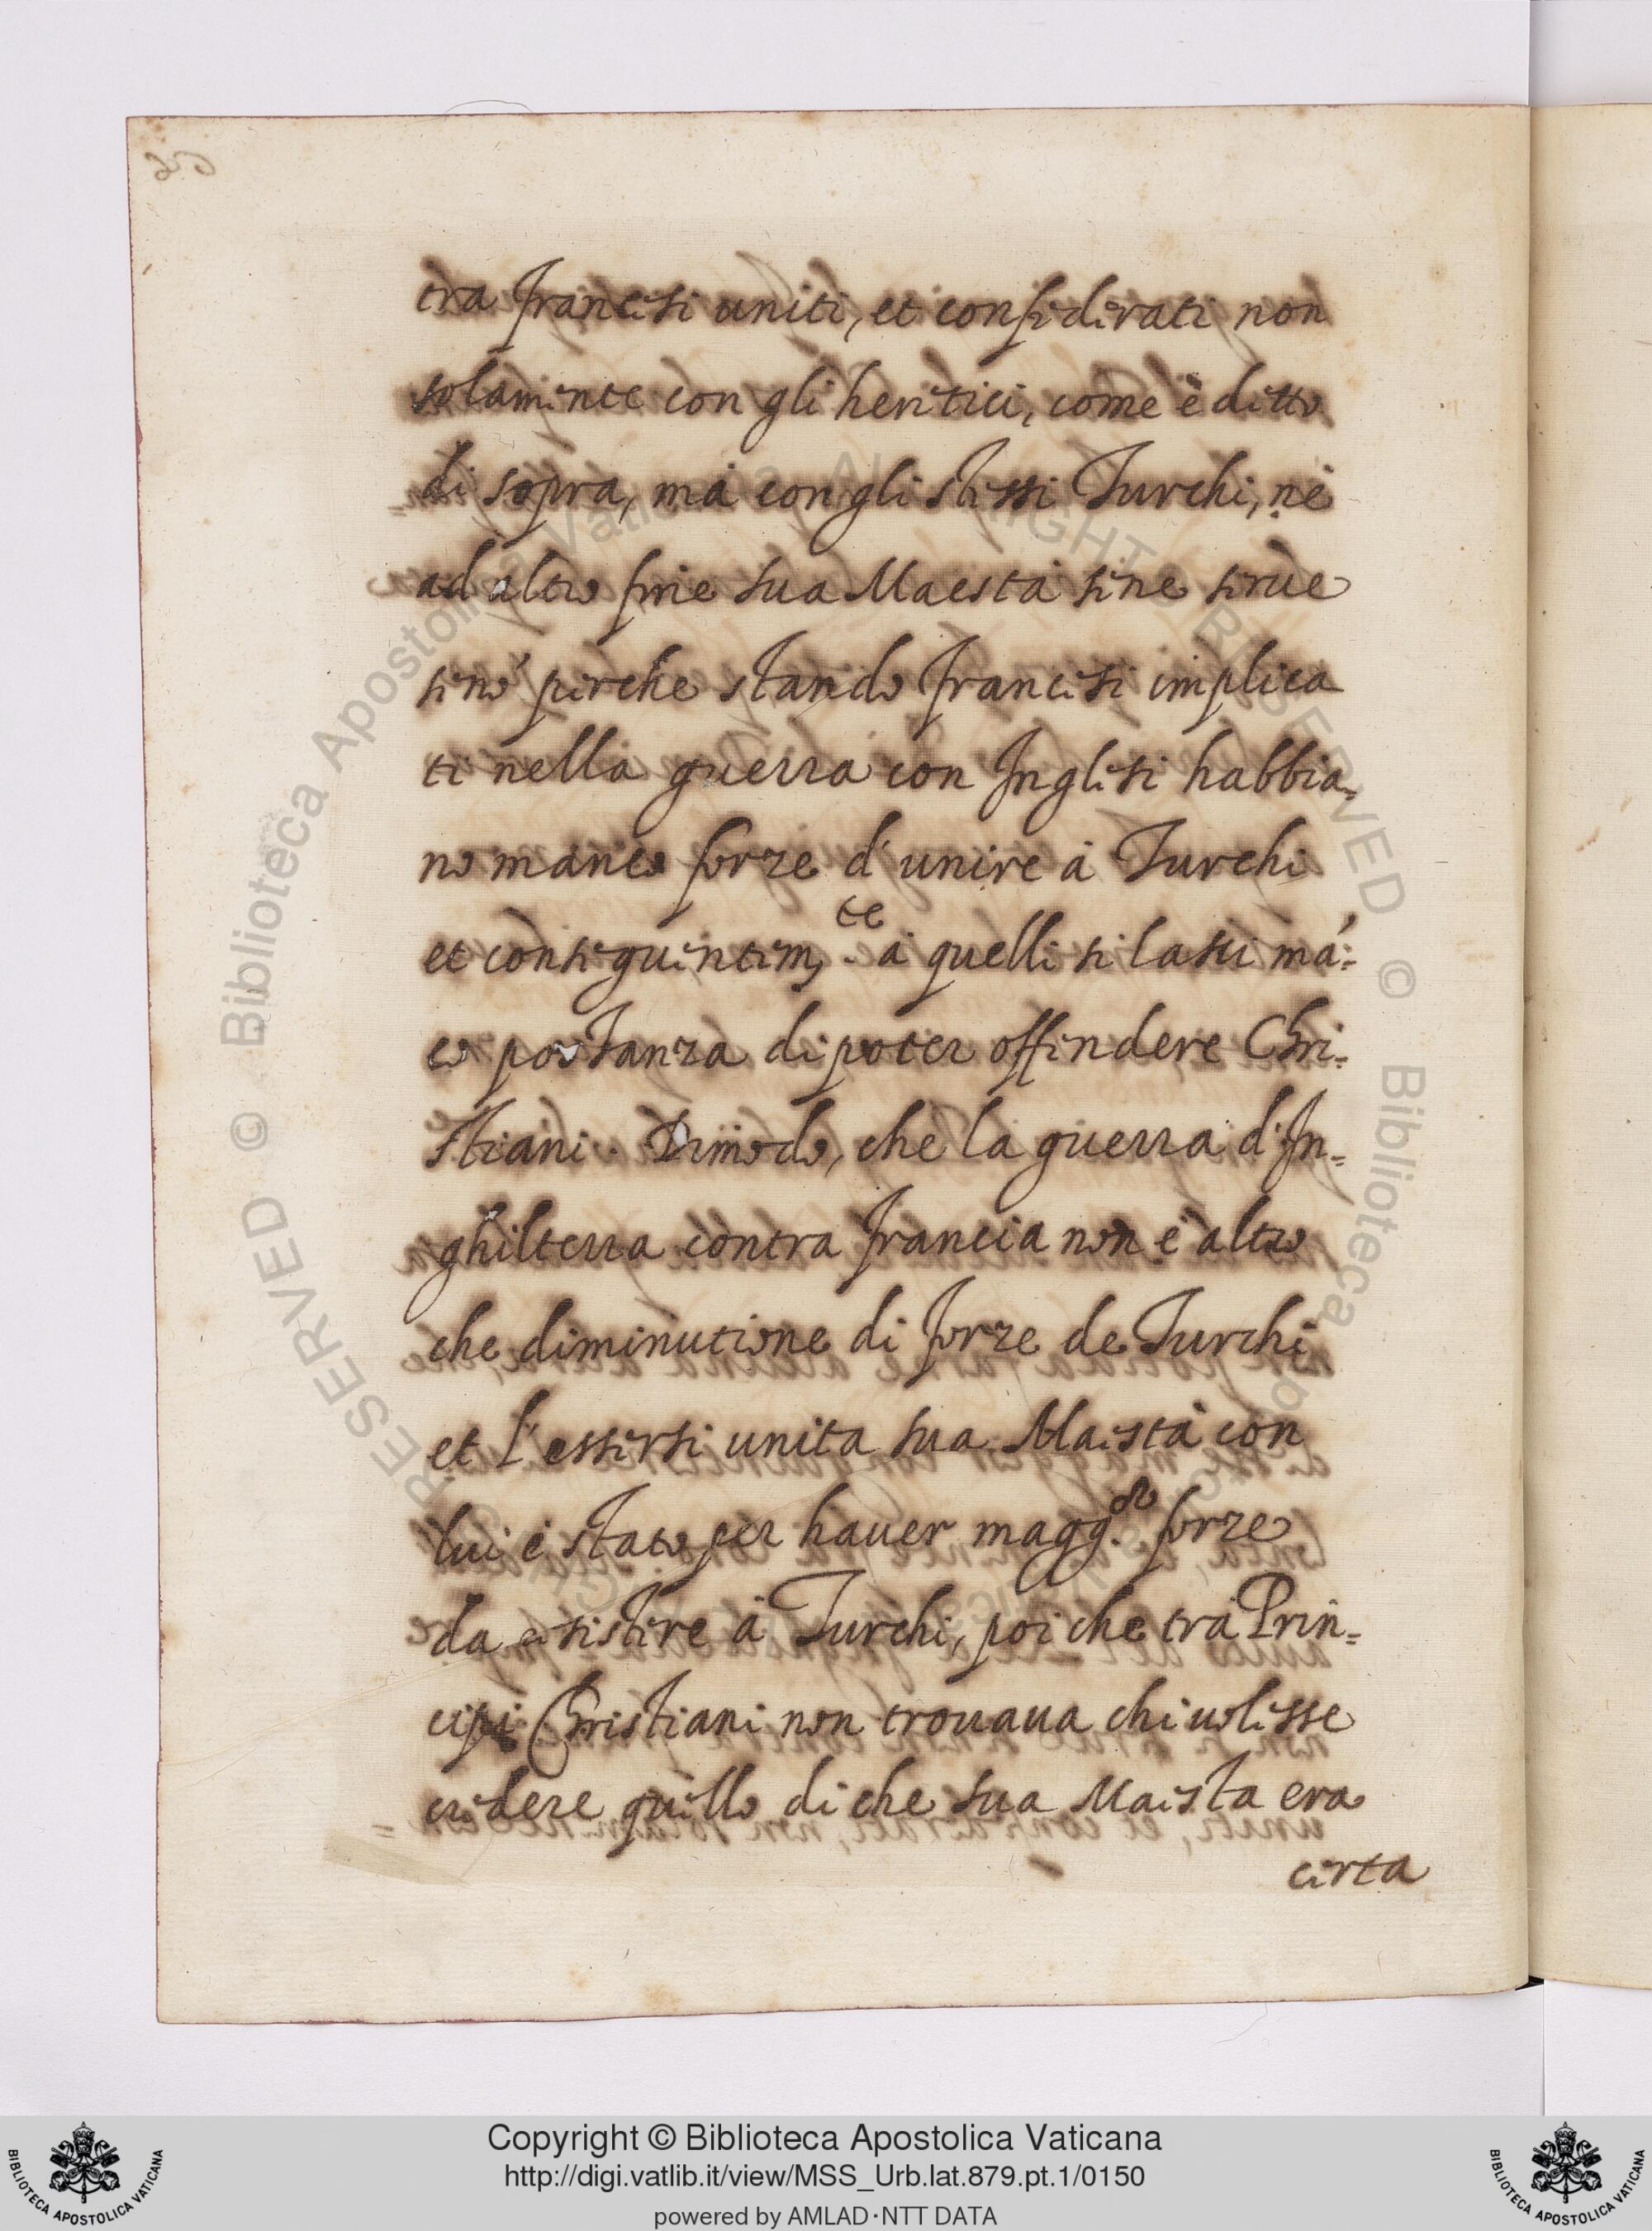 tra francesi uniti, et confederati non
solamente con gli heretici, come è detto
di sopra, mà con gli stessi Turchi, nè
ad altro fine sua Maestà se ne serue
senò perche stando francesi implica
ti nella guerra con Inglesi habbia=
no manco forze d'unire à Turchi
et conseguentem.te à quelli si lasci má=
co possanza di poter offendere Chri=
stiani. Dimodo, che la guerra d'In=
ghilterra contra francia non è altro
che diminutione di forze de Turchi
et l'essersi unita sua Maestà con
lui è stato per hauer magg.or forze
da resistere à Turchi, poiche trà Prin=
cipi Christiani non trouaua chi uolesse
credere quello di che sua Maesta era
certa
Copyright © Biblioteca Apostolica Vaticana
http://digi.vatlib.it/view/MSS_Urb.lat.879.pt.1/0150
powered by AMLAD·NTT DATA
BIBLIOTECA APOSTOLICA VATICANA
BIBLIOTECA APOSTOLICA VATICANA